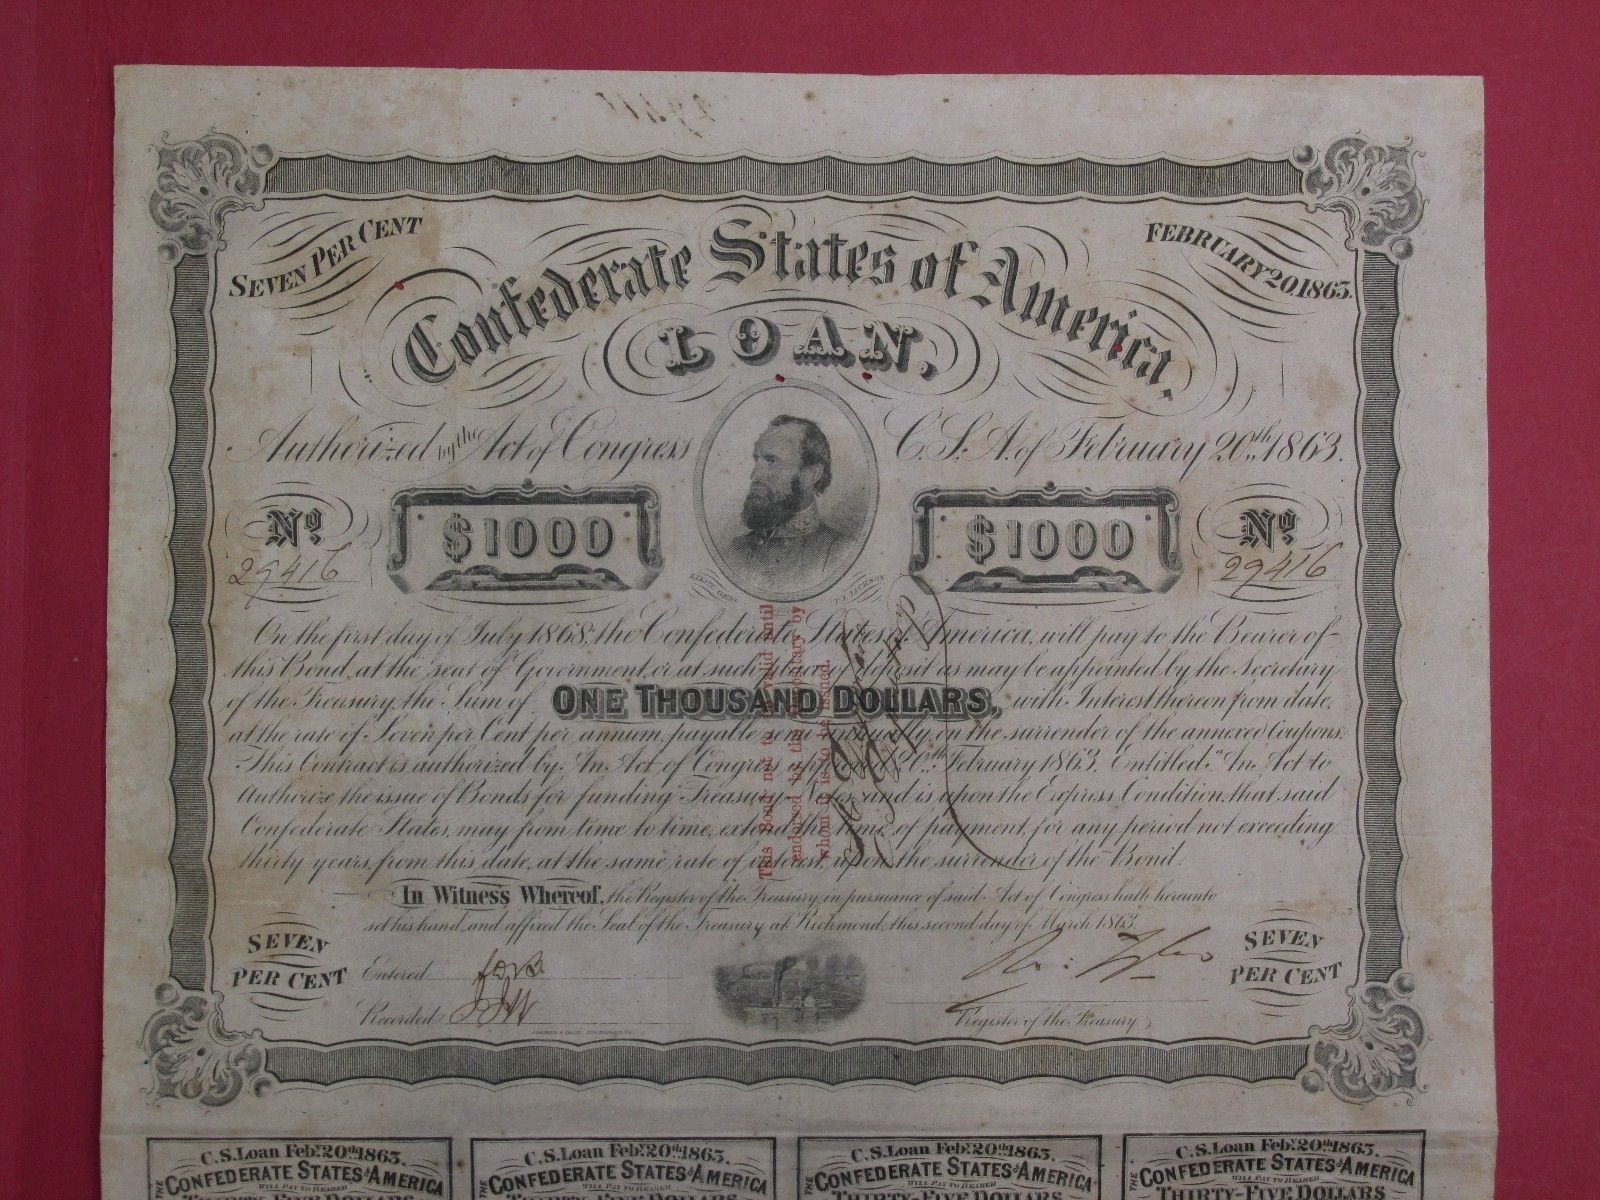 SEVEN PER CENT
FEBRUARY 20, 1863.
Confederate States of America.
LOAN.
Authorized by the Act of Congress C.S.A. of February 20th 1863.
No. $1000 $1000 No.
29416 29416
LIEUT. GENL. T.J. JACKSON
On the first day of July 1868, the Confederate States of America, will pay to the Bearer of
this Bond, at the seat of Government, or at such place of deposit as may be appointed by the Secretary
of the Treasury, the Sum of ONE THOUSAND DOLLARS, with Interest thereon from date,
at the rate of Seven per Cent per annum, payable semi annually, on the surrender of the annexed Coupons.
This Contract is authorized by An Act of Congress approved 20th February 1863, Entitled: "An Act to
Authorize the issue of Bonds for funding Treasury Notes, and is upon the Express Condition, that said
Confederate States, may from time to time, extend the time of payment, for any period not exceeding
thirty years, from this date, at the same rate of interest, upon the surrender of the Bond.
This Bond not to be valid until
endorsed by the Depositary by
whom it is to be issued.
In Witness Whereof, the Register of the Treasury, in pursuance of said Act of Congress hath hereunto
set his hand, and affixed the Seal of the Treasury at Richmond, this second day of March 1863.
SEVEN
PER CENT
Entered
Recorded
Ro: Tyler
Register of the Treasury
SEVEN
PER CENT
C.S. Loan Feby. 20th 1863.
THE CONFEDERATE STATES OF AMERICA
WILL PAY TO BEARER
THIRTY-FIVE DOLLARS
C.S. Loan Feby. 20th 1863.
THE CONFEDERATE STATES OF AMERICA
WILL PAY TO BEARER
THIRTY-FIVE DOLLARS
C.S. Loan Feby. 20th 1863.
THE CONFEDERATE STATES OF AMERICA
WILL PAY TO BEARER
THIRTY-FIVE DOLLARS
C.S. Loan Feby. 20th 1863.
THE CONFEDERATE STATES OF AMERICA
WILL PAY TO BEARER
THIRTY-FIVE DOLLARS